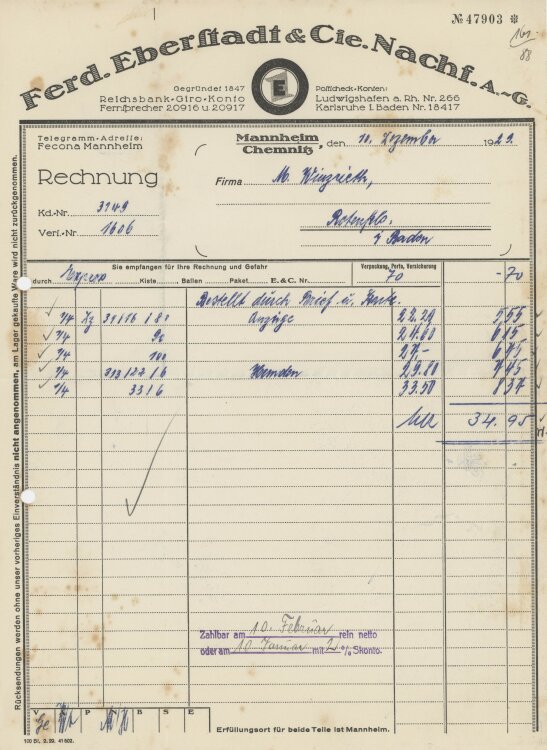 № 47903 ✻
161
88
Ferd. Eberstadt & Cie. Nachf. A.-G.
E
Gegründet 1847
Reichsbank-Giro-Konto
Fernsprecher 20916 u. 20917
Postscheck-Konten:
Ludwigshafen a. Rh. Nr. 266
Karlsruhe i. Baden Nr. 18417
Telegramm-Adresse:
Fecona Mannheim
Mannheim
Chemnitz, den 10. Dezember 1929.
Rechnung
Kd.-Nr. 3149
Verl.-Nr. 1606
Firma M.
i Baden
Sie empfangen für Ihre Rechnung und Gefahr
durch Express Kiste Ballen Paket E. & C. Nr.
Verpackung, Porto, Versicherung
70
-70
Bestellt durch Brief u. Karte.
1/4 Anzüge 22.20 5,55
1/4 90 24.60 6,15
1/4 100 27,- 6,75
1/4 Hemden 29.80 7,45
1/4 3316 33.50 8,37
34.95
Zahlbar am 10. Februar rein netto
oder am 10 Januar mit 2 % Skonto.
V K P N B S E
Erfüllungsort für beide Teile ist Mannheim.
100 Bl. 2. 29. 41802.
Rücksendungen werden ohne unser vorheriges Einverständnis nicht angenommen, am Lager gekaufte Ware wird nicht zurückgenommen.